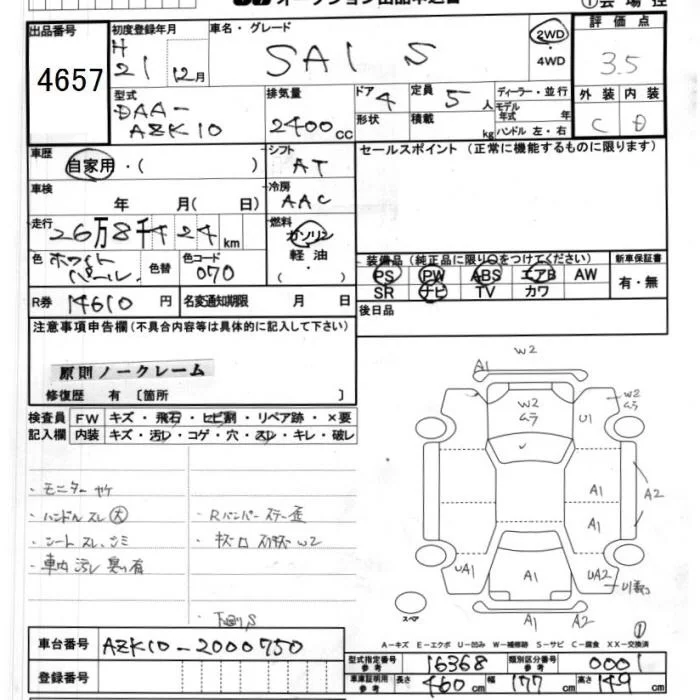 オークション出品申込書
出品番号
4657
初度登録年月
H
21 12月
車名・グレード
SAI S
2WD
・
4WD
評価点
3.5
型式
DAA-
AZK10
排気量
2400cc
ドア 4
形状
定員 5人
積載 kg
ディーラー・並行
モデル年式 年
ハンドル 左・右
外装 内装
C D
車歴
自家用・( )
シフト
AT
セールスポイント (正常に機能するものに限ります)
車検
年 月( 日)
冷房
AAC
走行
26万8千424km
燃料
ガソリン
軽油
・
色 ホワイトパール
色替
色コード
070
装備品(純正品に限り○をつけてください)
PS PW ABS エアB AW
SR ナビ TV カワ
新車保証書
有・無
R券 14610円
名変通知期限 月 日
後日品
注意事項申告欄(不具合内容等は具体的に記入して下さい)
原則ノークレーム
修復歴 有〔箇所 〕
検査員記入欄
FW キズ・飛石・ヒビ割・リペア跡・×要
内装 キズ・汚レ・コゲ・穴・スレ・キレ・破レ
・モニターヤケ
・ハンドルスレ(大)
・シートスレ、シミ
・車内汚レ 臭い有
・Rバンパーステー歪
・キズロ スリキズW2
下廻りS
W2
A1
W2
ムラ
U1
W2
ムラ
A1
A2
A1
UA1
A1
UA2
A1
A2
スペア
A−キズ E−エクボ U−凹み W−補修跡 S−サビ C−腐食 XX−交換済
車台番号 AZK10-2000750
登録番号
型式指定番号参考 16368
類別区分番号 0001
車庫証明用参考 長さ 460cm 幅 177cm 高さ 149cm